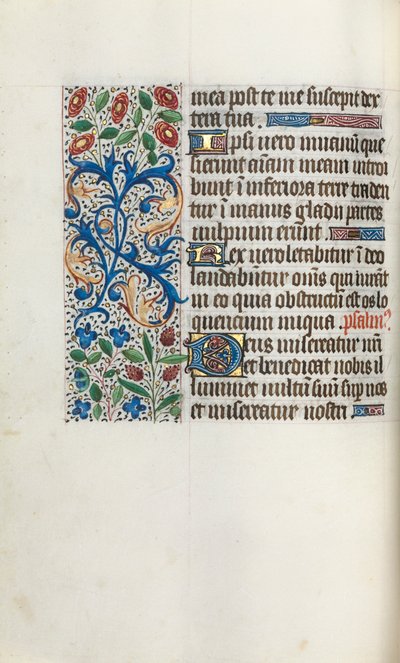 mea post te me suscepit dex
tera tua.
Ipsi vero in vanū que
sierunt aīam meam introi
bunt ī inferiora terre traden
tur ī manus gladii partes
vulpium erunt.
Rex vero letabitur ī deo
laudabūtur oīns qui iurāt
in eo quia obstructū est os lo
quentium iniqua. psalm?
Deus misereatur nrī
et benedicat nobis il
luminet vultū suū sup nos
et misereatur nostri